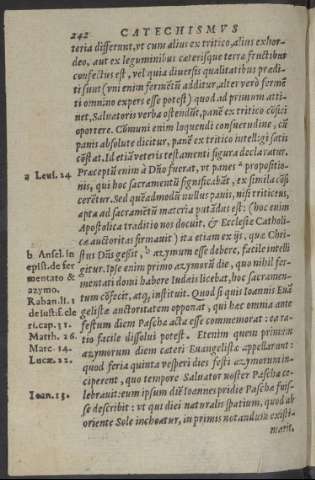 242 CATECHISMVS
teria differunt, vt cum alius ex tritico, alius ex hor-
deo, aut ex leguminibus cæterisque terra fructibus
confectus est, vel quia diuersis qualitatibus præd-
ti sunt (vni enim fermētū additur, alter verò fermē
ti omnino expers esse potest) quod ad primum atti-
net, Saluatoris verba ostendūt, panē ex tritico cōfici
oportere. Cōmuni enim loquendi consuetudine, cū
panis absolute dicitur, panē ex tritico intelligi satis
cōstat. Id etiā veteris testamenti figura declaratur.
a Leui. 24. Præceptū enim à Dño fuerat, vt panes a propositio-
nis, qui hoc sacramentū significabāt, ex simila cōfi
cerētur. Sed quēadmodū nullus panis, nisi triticeus,
apta ad sacramētū materia putādus est: (hoc enim
Apostolica traditio nos docuit, & Ecclesiæ Catholi-
ca auctoritas firmauit) ita etiam ex ijs, quæ Chri-
b Ansel. in stus Dñs gessit, b azymum esse debere, facile intelli
epist. de fer gitur. Ipse enim primo azymorū die, quo nihil fer-
mentato & mentati domi habere Iudæis licebat, hoc sacramen-
azymo. tum cōfecit, atq; instituit. Quod si quis Ioannis Euā
Raban. li. 1 gelistæ auctoritatem opponat, qui hæc omnia ante
de istit. cle festum diem Pascha acta esse commemorat: ea ra-
ri. cap. 31. tio facile dissolui potest. Etenim quem primum
Matth. 26. azymorum diem cæteri Euangelistæ appellarunt:
Marc. 14. quod feria quinta vesperi dies festi azymorum in-
Lucæ. 22. ciperent, quo tempore Saluator noster Pascha ce-
Ioan. 13. lebrauit: eum ipsum diē Ioannes pridie Pascha fuis-
se describit: vt qui diei naturalis spatium, quod ab
oriente Sole inchoatur, in primis notandum existi-
marit.